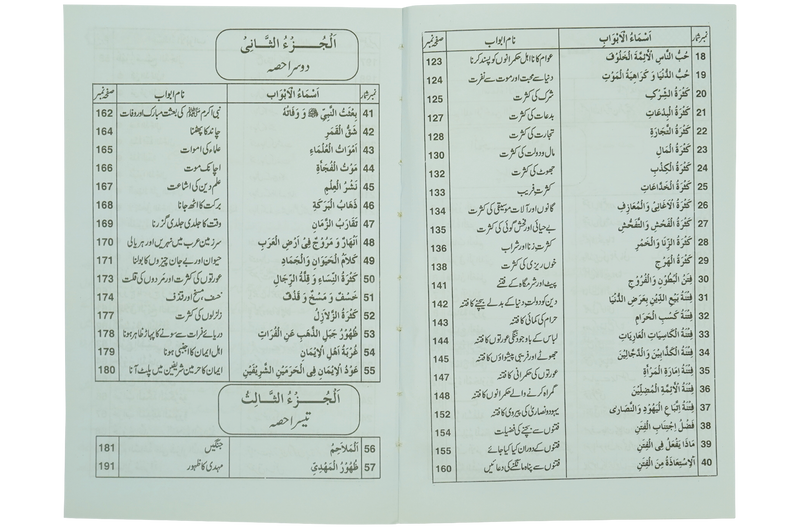 نمبر شمار اَسْمَاءُ الْاَبْوَابِ نام ابواب صفحہ نمبر
18 حُبُّ النَّاسِ الْاَئِمَّةَ الْخَلُوْفَ عوام کا نااہل حکمرانوں کو پسند کرنا 123
19 حُبُّ الدُّنْيَا وَ كَرَاهِيَةُ الْمَوْتِ دنیا سے محبت اور موت سے نفرت 124
20 كَثْرَةُ الشِّرْكِ شرک کی کثرت 125
21 كَثْرَةُ الْبِدْعَاتِ بدعات کی کثرت 127
22 كَثْرَةُ التِّجَارَةِ تجارت کی کثرت 128
23 كَثْرَةُ الْمَالِ مال و دولت کی کثرت 130
24 كَثْرَةُ الْكِذْبِ جھوٹ کی کثرت 132
25 كَثْرَةُ الْخَدَّاعَاتِ کثرت فریب 133
26 كَثْرَةُ الْاَغَانِيْ وَ الْمَعَازِفِ گانوں اور آلات موسیقی کی کثرت 134
27 كَثْرَةُ الْفَحْشِ وَ التَّفَحُّشِ بے حیائی اور فحش گوئی کی کثرت 135
28 كَثْرَةُ الزِّنَا وَ الْخَمْرِ کثرت زنا اور شراب 136
29 كَثْرَةُ الْهَرْجِ خوں ریزی کی کثرت 138
30 فِتَنُ الْبُطُوْنِ وَ الْفُرُوْجِ پیٹ اور شرمگاہ کے فتنے 141
31 فِتْنَةُ بَيْعِ الدِّيْنِ بِعَرَضِ الدُّنْيَا دین کو دولت دنیا کے بدلے بیچنے کا فتنہ 142
32 فِتْنَةُ كَسْبِ الْحَرَامِ حرام کی کمائی کا فتنہ 143
33 فِتْنَةُ الْكَاسِيَاتِ الْعَارِيَاتِ لباس کے باوجود ننگی عورتوں کا فتنہ 144
34 فِتْنَةُ الْكَذَّابِيْنَ وَ الدَّجَّالِيْنَ جھوٹے اور فریبی پیشواؤں کا فتنہ 145
35 فِتْنَةُ اِمَارَةِ الْمَرْأَةِ عورتوں کی حکمرانی کا فتنہ 147
36 فِتْنَةُ الْاَئِمَّةِ الْمُضِلِّيْنَ گمراہ کرنے والے حکمرانوں کا فتنہ 148
37 فِتْنَةُ اِتِّبَاعِ الْيَهُوْدِ وَ النَّصَارٰى یہود و نصاریٰ کی پیروی کا فتنہ 152
38 فَضْلُ اِجْتِنَابِ الْفِتَنِ فتنوں سے بچنے کی فضیلت 154
39 مَاذَا يَفْعَلُ فِى الْفِتَنِ فتنوں کے دوران کیا کیا جائے 155
40 اَلْاِسْتِعَاذَةُ مِنَ الْفِتَنِ فتنوں سے پناہ مانگنے کی دعائیں 160
اَلْجُزْءُ الثَّانِىْ
دوسرا حصہ
نمبر شمار اَسْمَاءُ الْاَبْوَابِ نام ابواب صفحہ نمبر
41 بِعْثَتُ النَّبِيِّ ﷺ وَ وَفَاتُهُ نبی اکرم ﷺ کی بعثت مبارک اور وفات 162
42 شَقُّ الْقَمَرِ چاند کا پھٹنا 164
43 اَمْوَاتُ الْعُلَمَاءِ علماء کی اموات 165
44 مَوْتُ الْفُجَأَةِ اچانک موت 166
45 نَشْرُ الْعِلْمِ علم دین کی اشاعت 167
46 ذَهَابُ الْبَرَكَةِ برکت کا اٹھ جانا 168
47 تَقَارُبُ الزَّمَانِ وقت کا جلدی جلدی گزرنا 169
48 اَنْهَارٌ وَ مُرُوْجٌ فِىْ اَرْضِ الْعَرَبِ سرزمین عرب میں نہریں اور ہریالی 170
49 كَلَامُ الْحَيَوَانِ وَ الْجَمَادِ حیوان اور بے جان چیزوں کا بولنا 171
50 كَثْرَةُ النِّسَاءِ وَ قِلَّةُ الرِّجَالِ عورتوں کی کثرت اور مردوں کی قلت 173
51 خَسْفٌ وَ مَسْخٌ وَ قَذْفٌ خسف، مسخ اور قذف 174
52 كَثْرَةُ الزَّلَازِلِ زلزلوں کی کثرت 177
53 ظُهُوْرُ جَبَلِ الذَّهَبِ عَنِ الْفُرَاتِ دریائے فرات سے سونے کا پہاڑ ظاہر ہونا 178
54 غُرْبَةُ اَهْلِ الْاِيْمَانِ اہل ایمان کا اجنبی ہونا 179
55 عَوْدُ الْاِيْمَانِ فِى الْحَرَمَيْنِ الشَّرِيْفَيْنِ ایمان کا حرمین شریفین میں پلٹ آنا 180
اَلْجُزْءُ الثَّالِثُ
تیسرا حصہ
56 اَلْمَلَاحِمُ جنگیں 181
57 ظُهُوْرُ الْمَهْدِيِّ مہدی کا ظہور 191